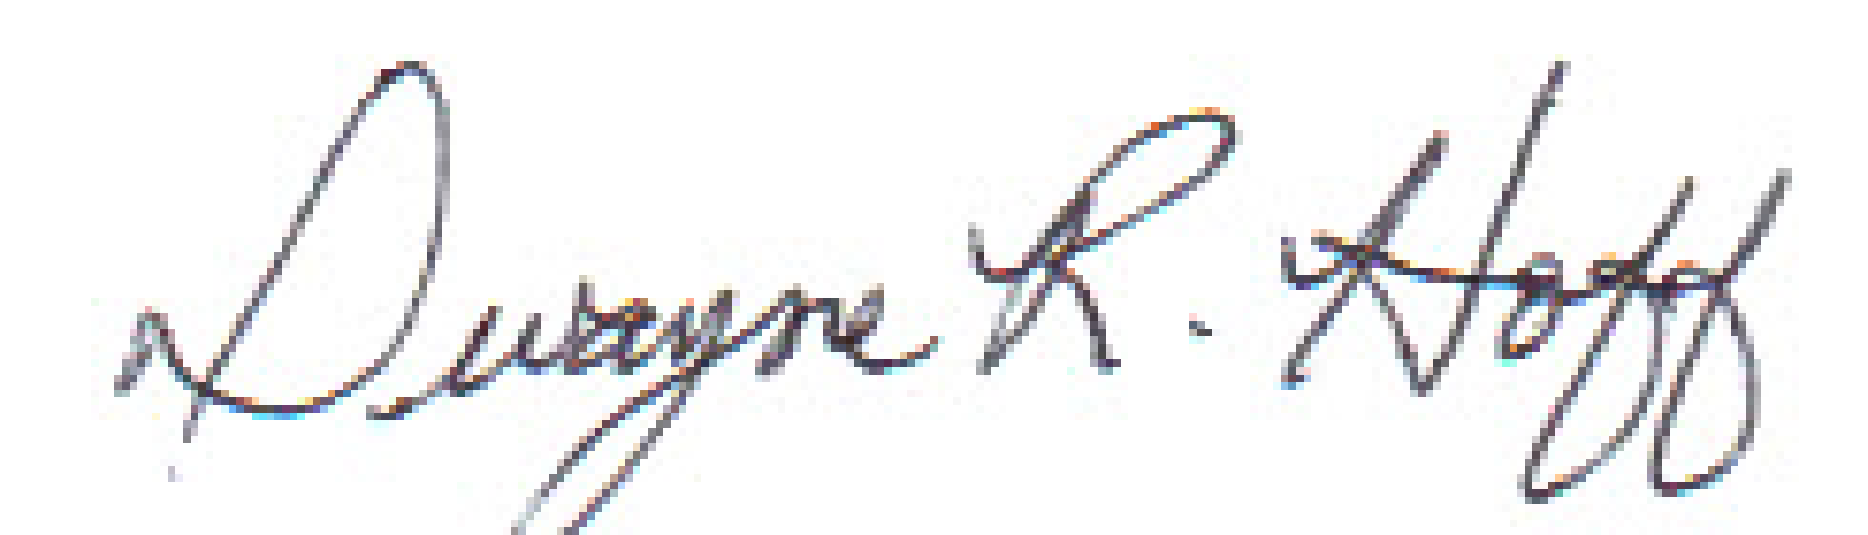 Dwayne R. Hoff